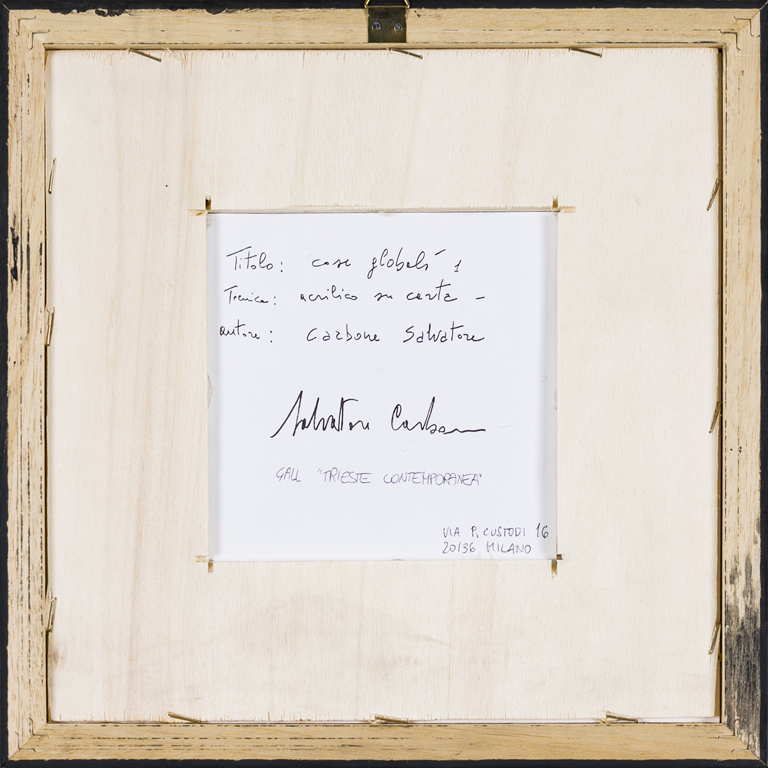 Titolo: case globali 1
Tecnica: acrilico su carta -
autore: Carbone Salvatore
Salvatore Carbone
GALL "TRIESTE CONTEMPORANEA"
VIA P. CUSTODI 16
20136 MILANO